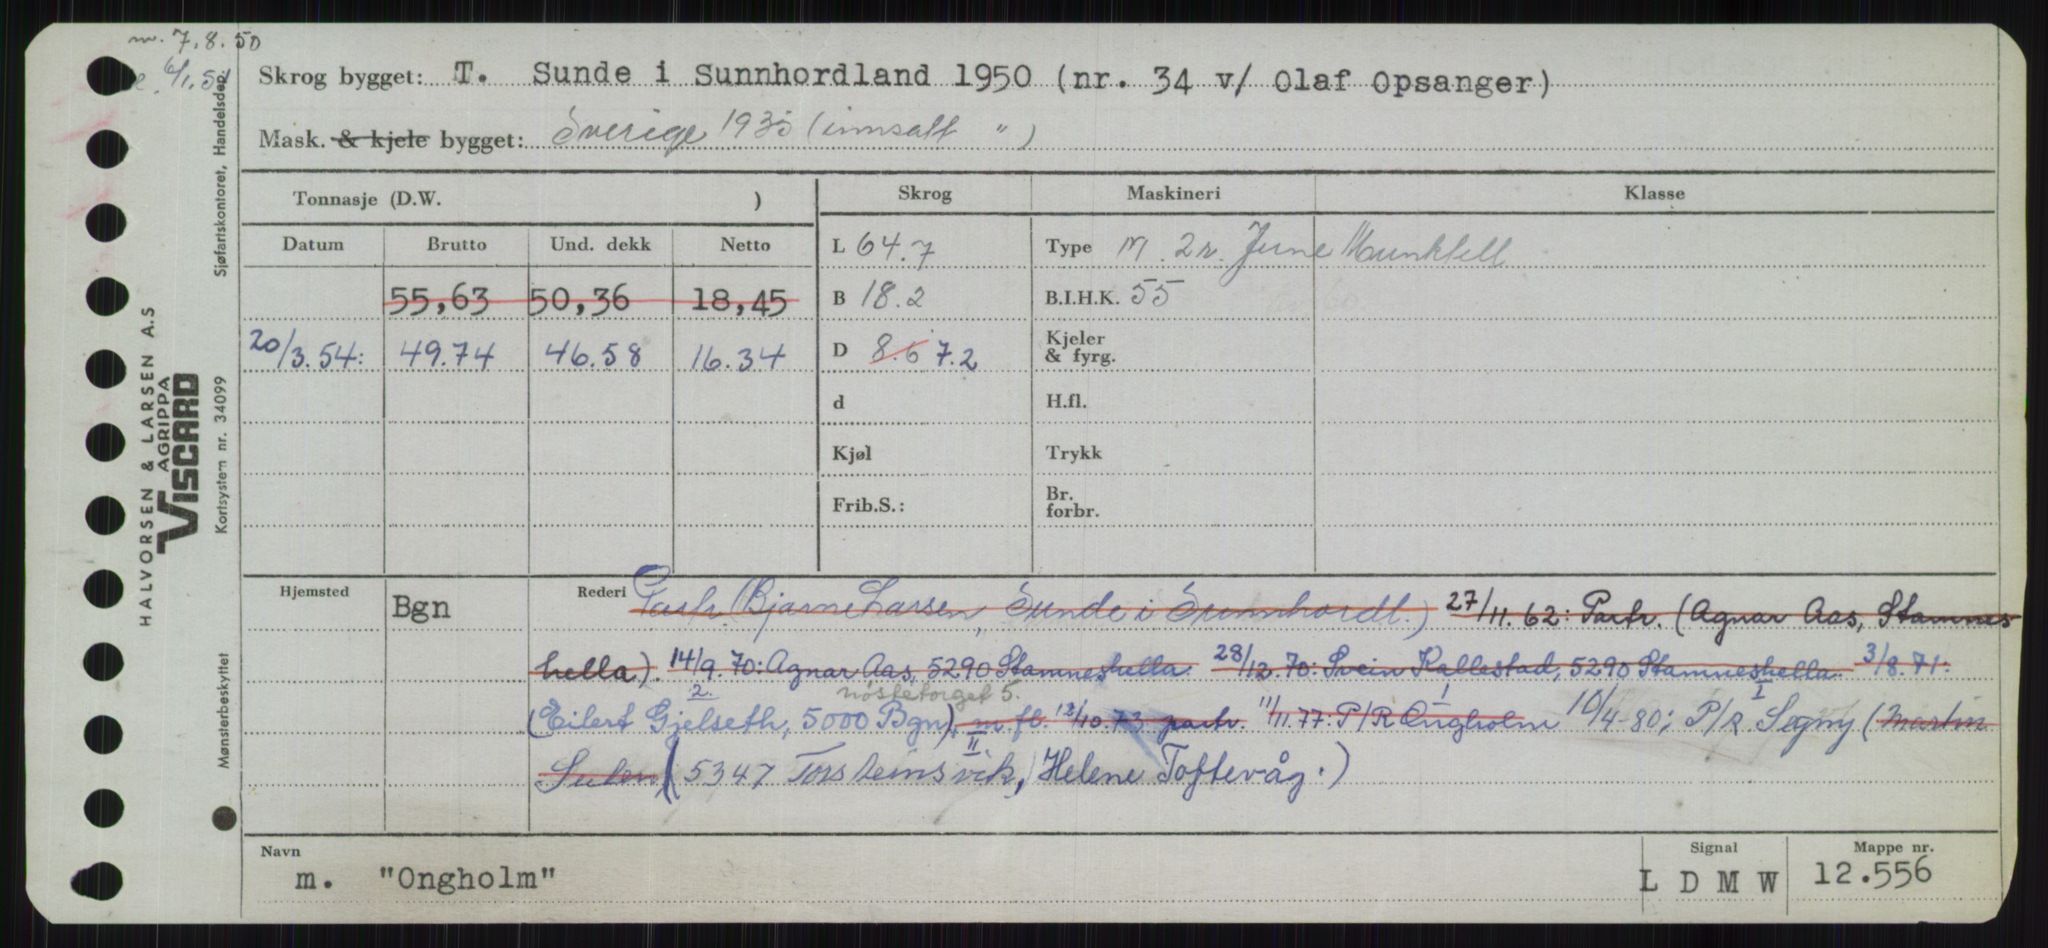 m. 7.8.50
6/1.51
Skrog bygget: T. Sunde i Sunnhordland 1950 (nr. 34 v/ Olaf Opsanger)
Mask. & kjele bygget: Sverige 1935 (innsatt " )
Tonnasje (D.W. ) Skrog Maskineri Klasse
Datum Brutto Und. dekk Netto L 64.7 Type M. 2 Munktell
55,63 50,36 18,45 B 18.2 B.I.H.K. 55
20/3.54: 49.74 46.58 16.34 D 8.6 7.2 Kjeler & fyrg.
d H.fl.
Kjøl Trykk
Frib.S.: Br. forbr.
Hjemsted Bgn Rederi Partr. (Bjarne Larsen, Sunde i Sunnhordl.) 27/11.62: Partr. (Agnar Aas, Stamnes-
hella). 14/9.70: Agnar Aas, 5290 Stamneshella. 28/12.70: Svein Kallestad, 5290 Stamneshella. 3/8.71:
2. nøstetorget 5. I I
(Eilert Gjelseth, 5000 Bgn), m.fl. 12/10.73 partr. 11/11.77: P/R Ongholm 10/4-80; P/R Segny (Martin
II.
( 5347 Torsteinsvik, Helene Toftevåg.)
Navn Signal Mappe nr.
m. "Ongholm" L D M W 12.556
Sjøfartskontoret, Handelsdep.
Kortsystem nr. 34099
Mønsterbeskyttet
HALVORSEN & LARSEN A.S
AGRIPPA
VISCARD